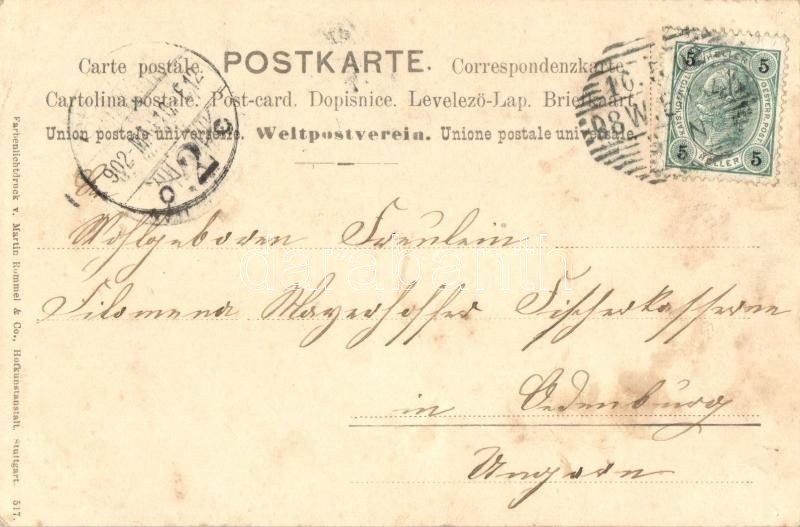 Carte postale. POSTKARTE. Correspondenzkarte.
Cartolina postale. Post-card. Dopisnice. Levelező-Lap. Briefkaart.
Union postale universelle. Weltpostverein. Unione postale universale.
5 HELLER 5
5 HELLER 5
902
2
16
Wohlgeboren Fräulein
Filomena Mayerhoffer Fischerkasserne
in Oedenburg
Ungarn
Farbenlichtdruck v. Martin Rommel & Co., Hofkunstanstalt, Stuttgart. 517.
darabanth